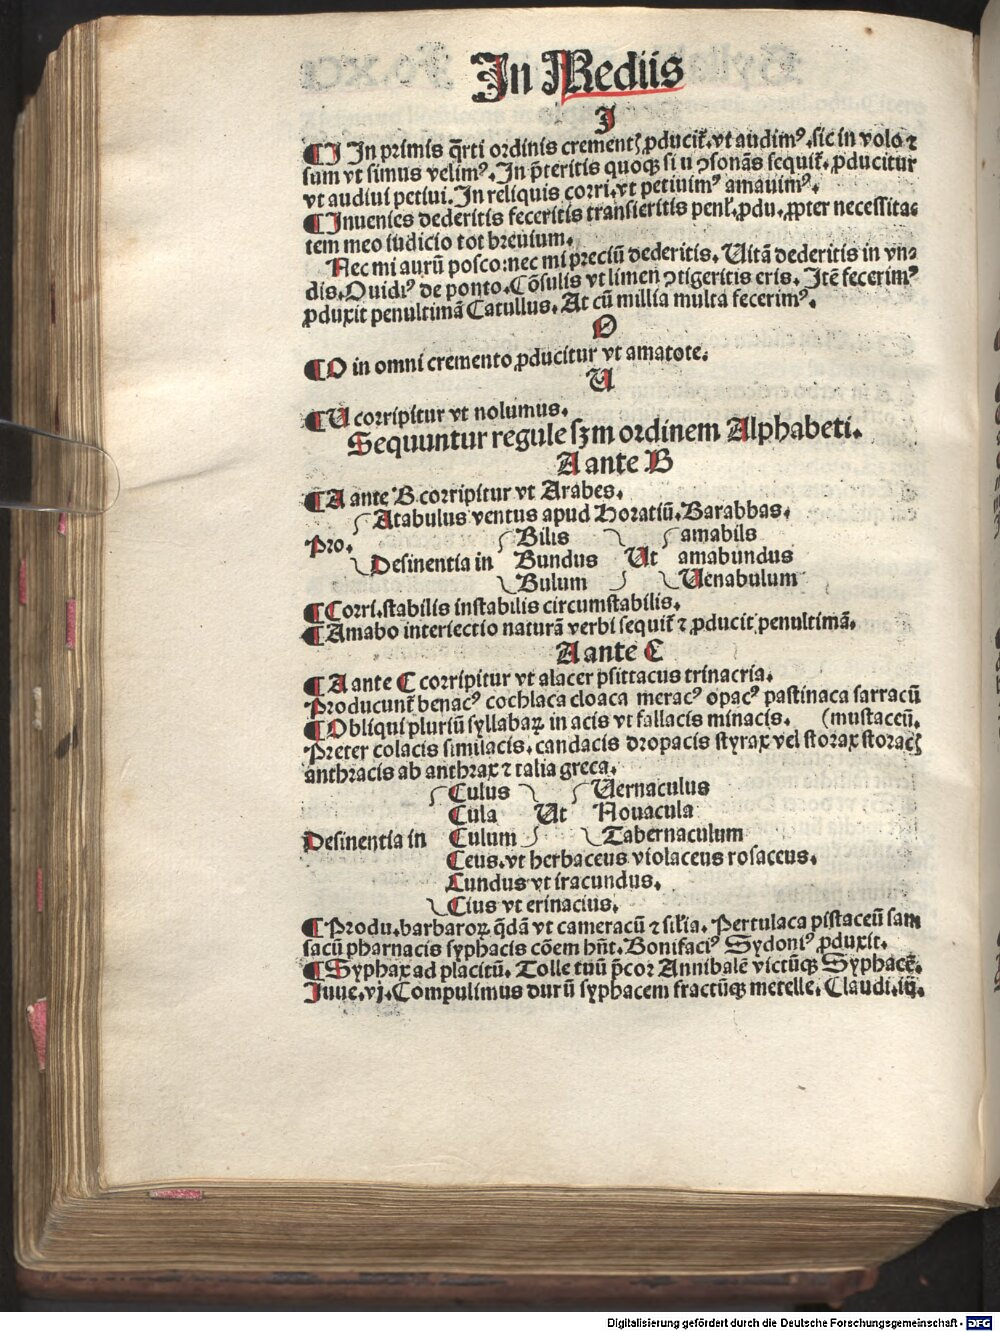 In Mediis
I
¶ I In primis q̄rti ordinis crementꝭ ꝓducit᷑. vt audimꝰ. sic in volo ⁊
sum vt simus velimꝰ. In p̄teritis quoqꝫ si u ꝯsonās sequit᷑. ꝓducitur
vt audiui petiui. In reliquis corri. vt petiuimꝰ amauimꝰ.
¶ Inuenies dederitis feceritis transieritis penl̕. ꝓdu. ꝓpter necessita⸗
tem meo iudicio tot breuium.
Nec mi aurū posco: nec mi preciū dederitis. Uitā dederitis in vn⸗
dis. Ouidiꝰ de ponto. Cōsulis vt limen ꝯtigeritis eris. Itē fecerimꝰ
ꝓduxit penultimā Catullus. At cū millia multa fecerimꝰ.
O
¶ O in omni cremento ꝓducitur vt amatote.
U
¶ U corripitur vt nolumus.
Sequuntur regule scꝫm ordinem Alphabeti.
A ante B
¶ A ante B corripitur vt Arabes.
Atabulus ventus apud Horatiū. Barabbas.
Bilis amabils
Pro. Desinentia in Bundus Ut amabundus
Bulum Uenabulum
¶ Corri. stabilis instabilis circumstabilis.
¶ Amabo interiectio naturā verbi sequit᷑ ⁊ ꝓducit penultimā.
A ante C
¶ A ante C corripitur vt alacer psittacus trinacria.
Producunt᷑ benacꝰ cochlaca cloaca meracꝰ opacꝰ pastinaca sarracū
¶ Obliqui pluriū syllabaꝝ in acis vt fallacis minacis. (mustaceū.
Preter colacis similacis. candacis dropacis styrax vel storax storacꝭ
anthracis ab anthrax ⁊ talia greca.
Culus Uernaculus
Cula Ut Nouacula
Desinentia in Culum Tabernaculum
Ceus. vt herbaceus violaceus rosaceus.
Cundus vt iracundus.
Cius vt erinacius.
¶ Produ. barbaroꝝ q̄dā vt cameracū ⁊ sil̕ia. Pertulaca pistaceū sam
sacū pharnacis syphacis cōem hn̄t. Bonifaciꝰ Sydoniꝰ ꝓduxit.
¶ Syphax ad placitū. Tolle tuū p̄cor Annibalē victūqꝫ Syphacē.
Juue. vj. Compulimus durū syphacem fractūqꝫ metelle. Claudi. iij.
Digitalisierung gefördert durch die Deutsche Forschungsgemeinschaft - DFG